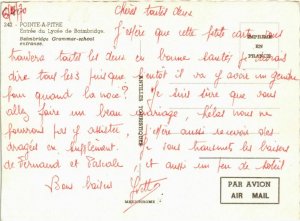 6/4/70
Chères toutes deux
242 - POINTE-A-PITRE
Entrée du Lycée de Baimbridge.
Baimbridge Grammar-school
entrance.
J'espère que cette petite carte vous
IMPRIMÉ EN FRANCE
trouvera toutes les deux en bonne santé
dire tous les 3 puisque bientôt il va y avoir un gendre
pour quand la noce? Je suis sûre que vous
allez faire un beau mariage, hélas nous ne
pourrons pas y assister
dragées en supplément. vous transmets les baisers
de Fernand et Pascale et aussi un peu de soleil
Bons baisers
ANTILLES TOURISTIQUES
PAR AVION
AIR MAIL
MEXICHROME